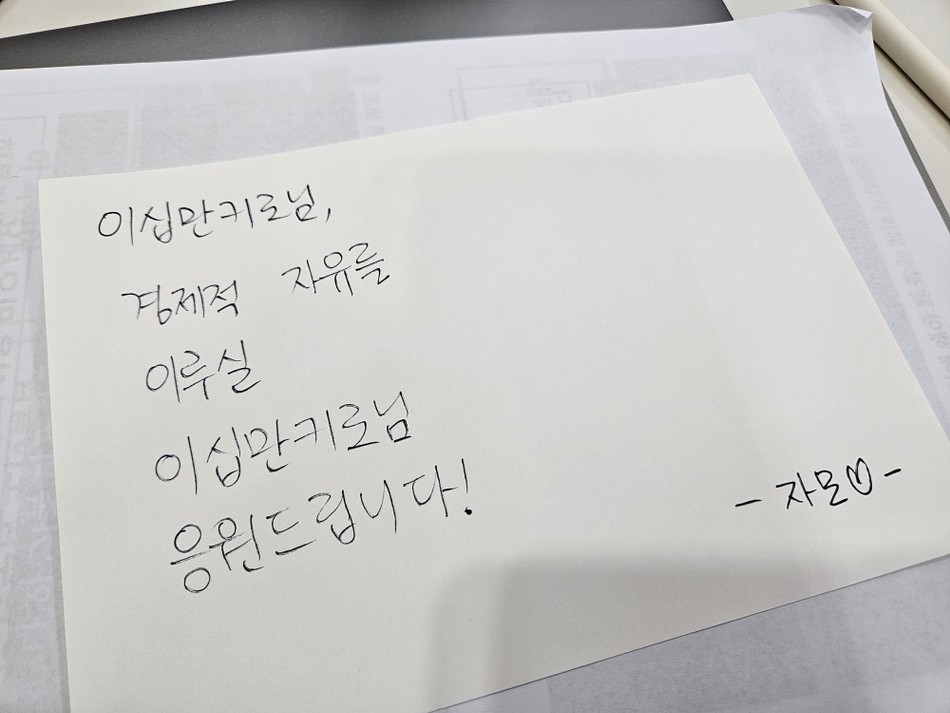 이십만키로님,
경제적 자유를
이루실
이십만키로님
응원드립니다!
- 자모♡ -